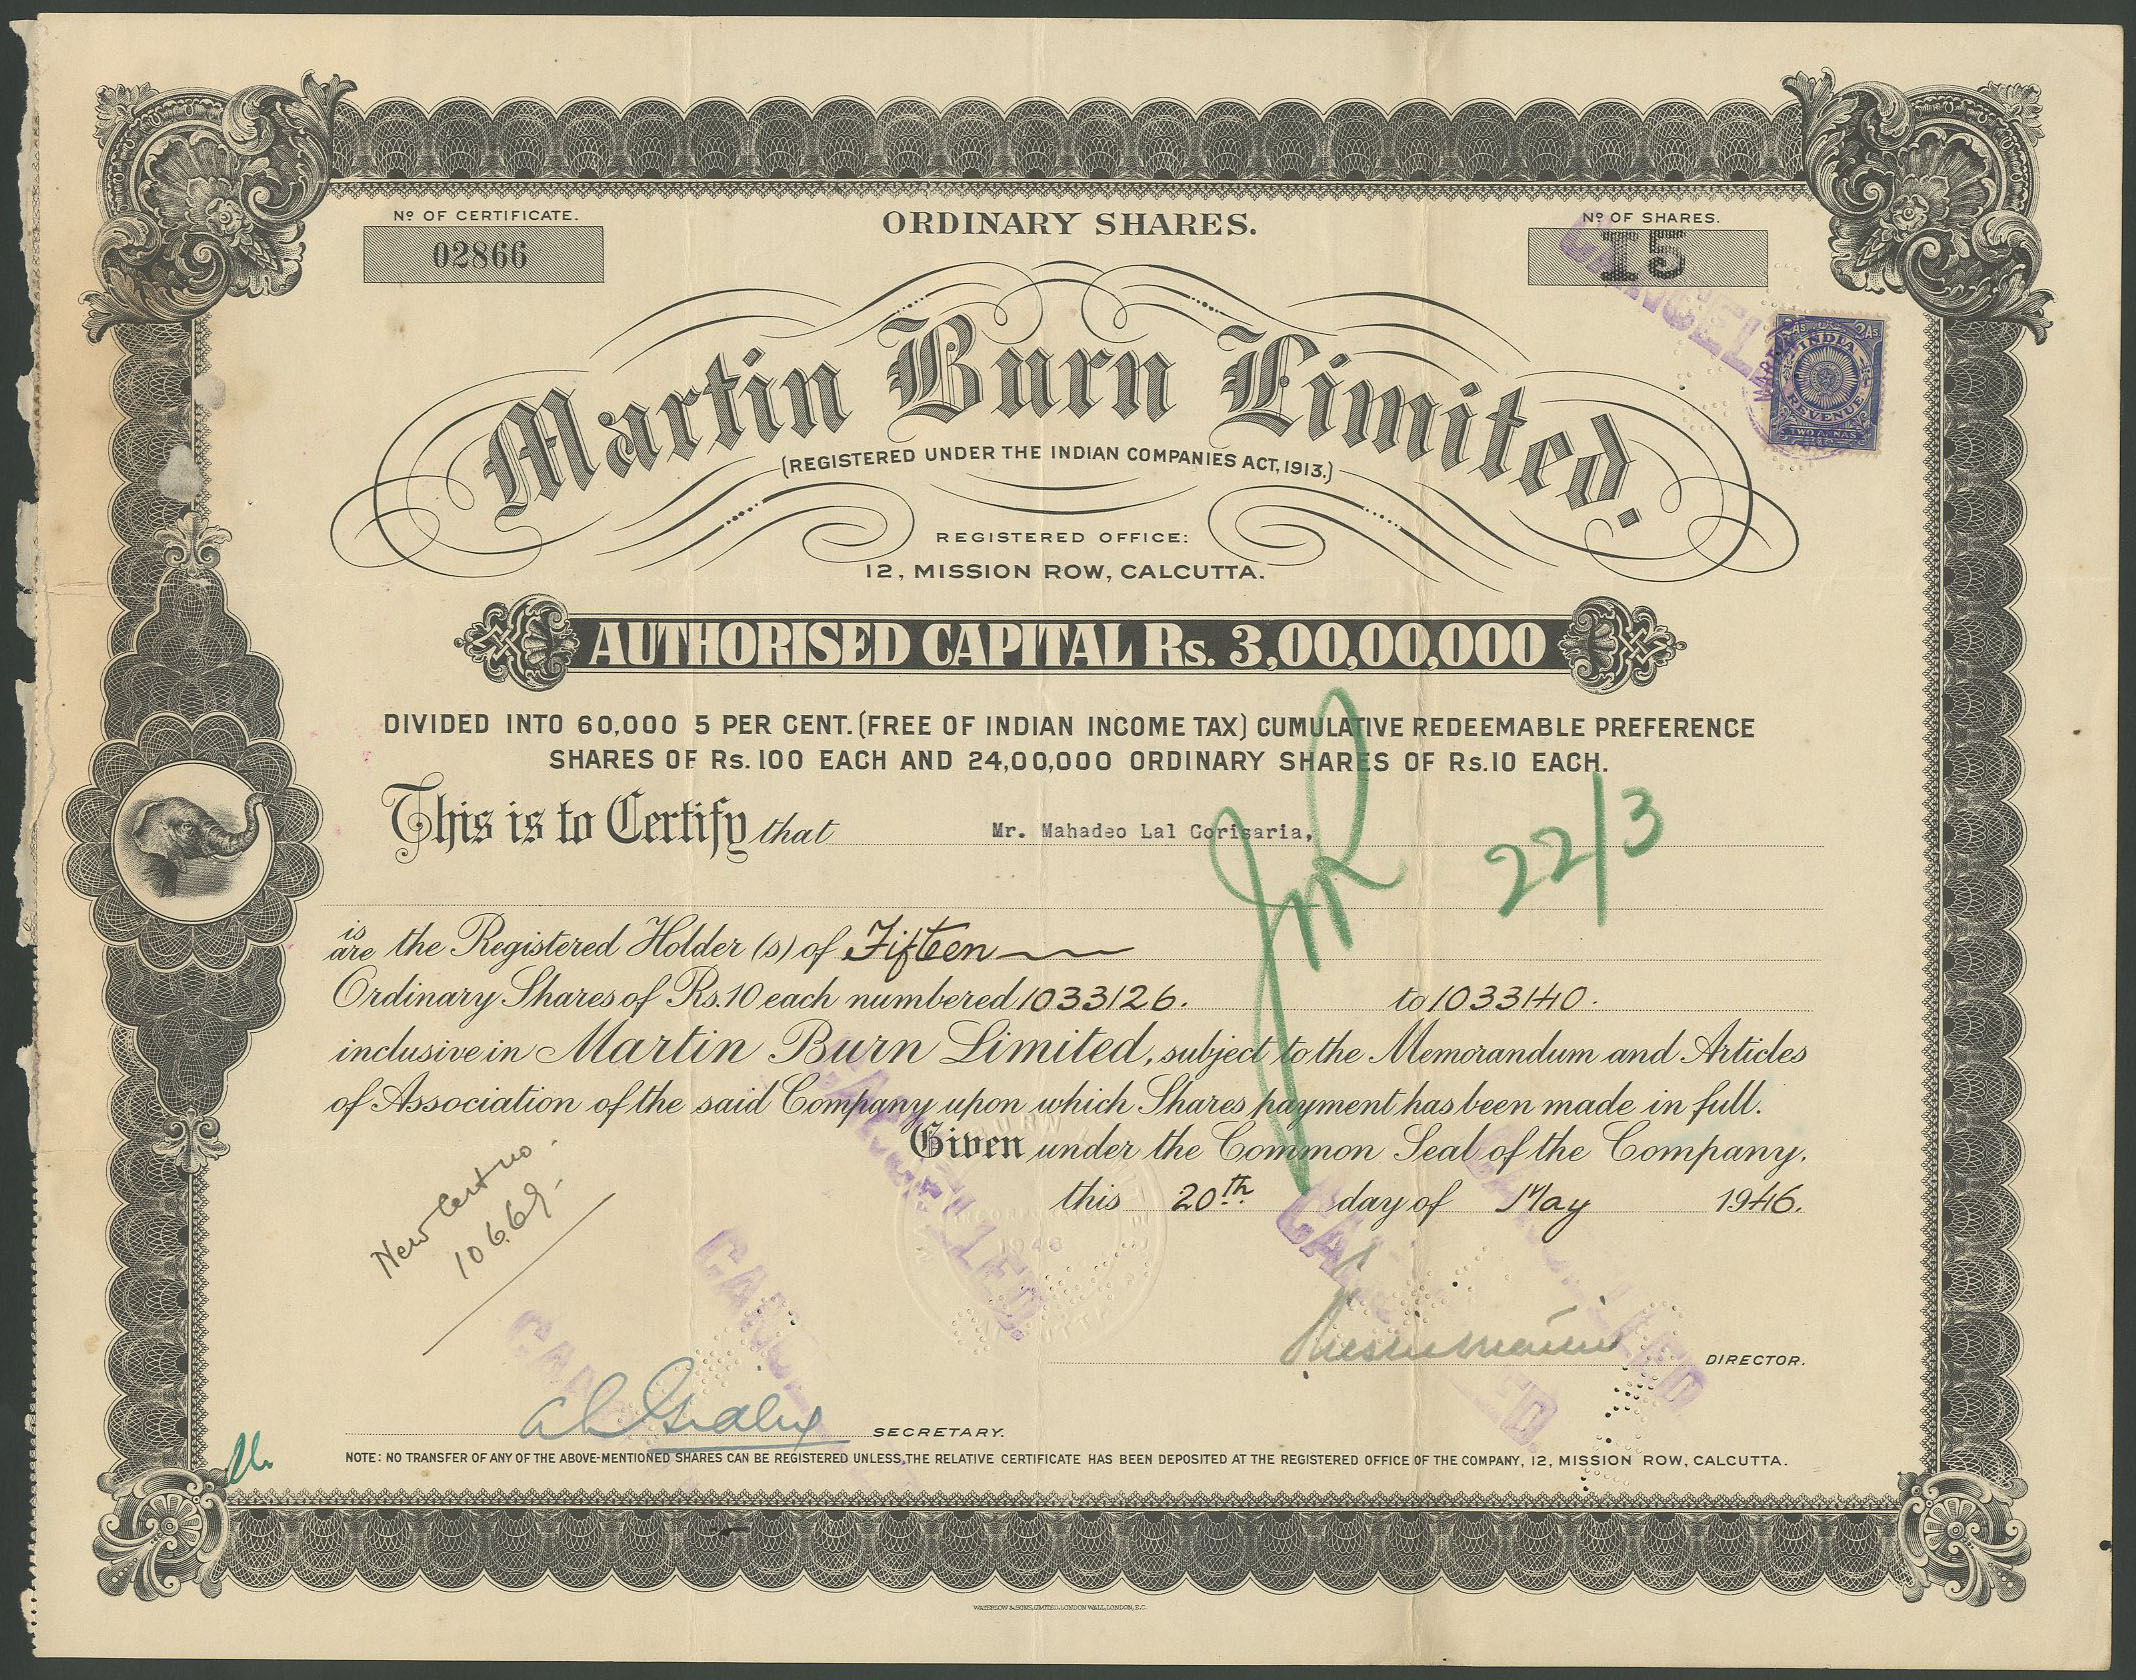 Nº OF CERTIFICATE.
02866
ORDINARY SHARES.
Nº OF SHARES.
15
CANCELL
Martin Burn Limited.
(REGISTERED UNDER THE INDIAN COMPANIES ACT, 1913.)
REGISTERED OFFICE:
12, MISSION ROW, CALCUTTA.
2As. 2As.
INDIA
REVENUE
TWO ANNAS
AUTHORISED CAPITAL Rs. 3,00,00,000
DIVIDED INTO 60,000 5 PER CENT. (FREE OF INDIAN INCOME TAX) CUMULATIVE REDEEMABLE PREFERENCE
SHARES OF Rs. 100 EACH AND 24,00,000 ORDINARY SHARES OF Rs. 10 EACH.
This is to Certify that Mr. Mahadeo Lal Gorisaria,
22/3
is
are the Registered Holder (s) of Fifteen
Ordinary Shares of Rs. 10 each numbered 1033126. to 1033140.
inclusive in Martin Burn Limited, subject to the Memorandum and Articles
of Association of the said Company upon which Shares payment has been made in full.
Given under the Common Seal of the Company,
this 20th day of May 1946.
New Cert no.
10669.
CANCELLED.
CANCELLED.
DIRECTOR.
SECRETARY.
NOTE: NO TRANSFER OF ANY OF THE ABOVE-MENTIONED SHARES CAN BE REGISTERED UNLESS THE RELATIVE CERTIFICATE HAS BEEN DEPOSITED AT THE REGISTERED OFFICE OF THE COMPANY, 12, MISSION ROW, CALCUTTA.
WATERLOW & SONS, LIMITED, LONDON WALL, LONDON, E.C.